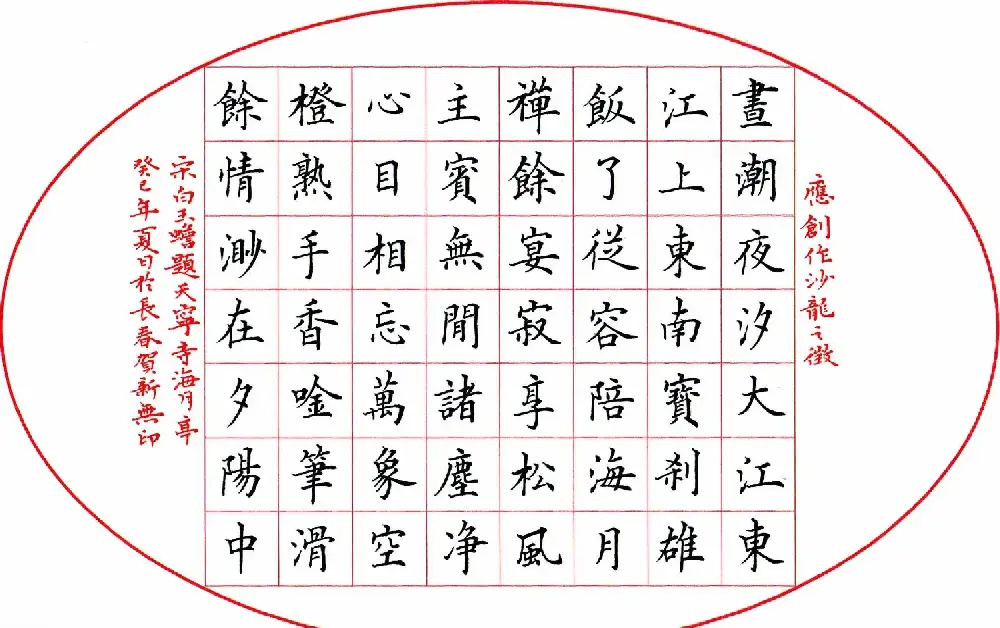 應創作沙龍之徵
晝潮夜汐大江東
江上東南寶刹雄
飯了從容陪海月
禪餘宴寂享松風
主賓無間諸塵净
心目相忘萬象空
橙熟手香唫筆滑
餘情渺在夕陽中
宋白玉蟾題天寧寺海月亭
癸巳年夏日於長春賀新無印